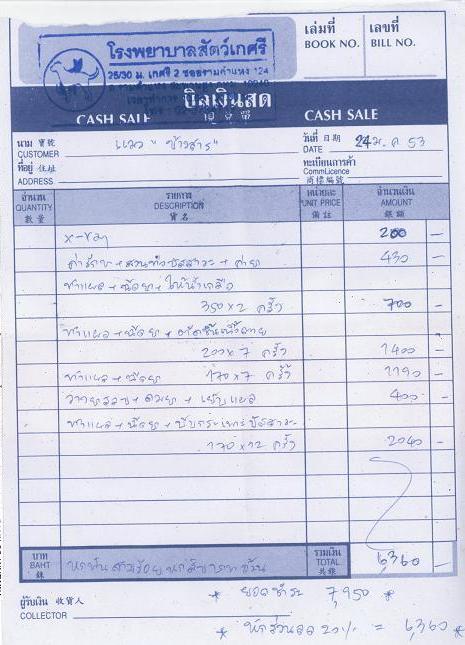 โรงพยาบาลสัตว์เกศรี
25/30 ม. เกศรี 2 ซอยรามคำแหง 124
เล่มที่
BOOK NO.
เลขที่
BILL NO.
CASH SALE บิลเงินสด CASH SALE
นาม 寶號
CUSTOMER แมว "ข้าวสาร"
วันที่ 日期
DATE 24 ม.ค 53
ที่อยู่ 住址
ADDRESS
ทะเบียนการค้า
CommLicence
商標編號
จำนวน
QUANTITY
數量
รายการ
DESCRIPTION
貨名
หน่วยละ
UNIT PRICE
備註
จำนวนเงิน
AMOUNT
銀額
x-ray 200 –
ค่ารักษา + สวนท่อปัสสาวะ + ค่ายา 430 –
ทำแผล + ฉีดยา + ให้น้ำเกลือ
350 x 2 ครั้ง 700 –
ทำแผล + ฉีดยา +
200 x 7 ครั้ง 1400 –
ทำแผล + ฉีดยา 170 x 7 ครั้ง 1190 –
วางยาสลบ + ดมยา + เย็บแผล 400 –
ทำแผล + ฉีดยา + บีบกระเพาะปัสสาวะ
170 x 12 ครั้ง 2040 –
บาท
BAHT
銖
หกพันสามร้อยหกสิบบาทถ้วน
รวมเงิน
TOTAL
共銀
6,360 –
ผู้รับเงิน 收貨人
COLLECTOR
* ยอดชำระ 7,950 *
* หักส่วนลด 20% = 6,360 *